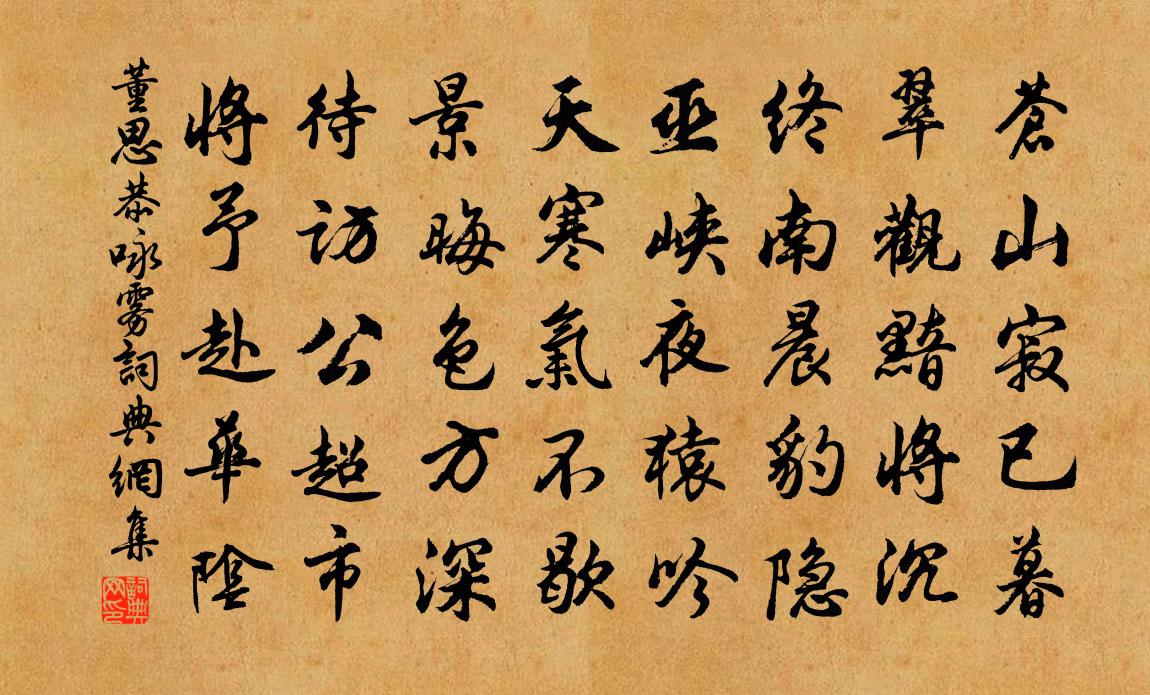 蒼山寂已暮
翠觀黯將沉
終南晨豹隐
巫峽夜猿吟
天寒氣不歇
景晦色方深
待訪公超市
將予赴華陰
董思恭咏雾詞典網集
詞典网印